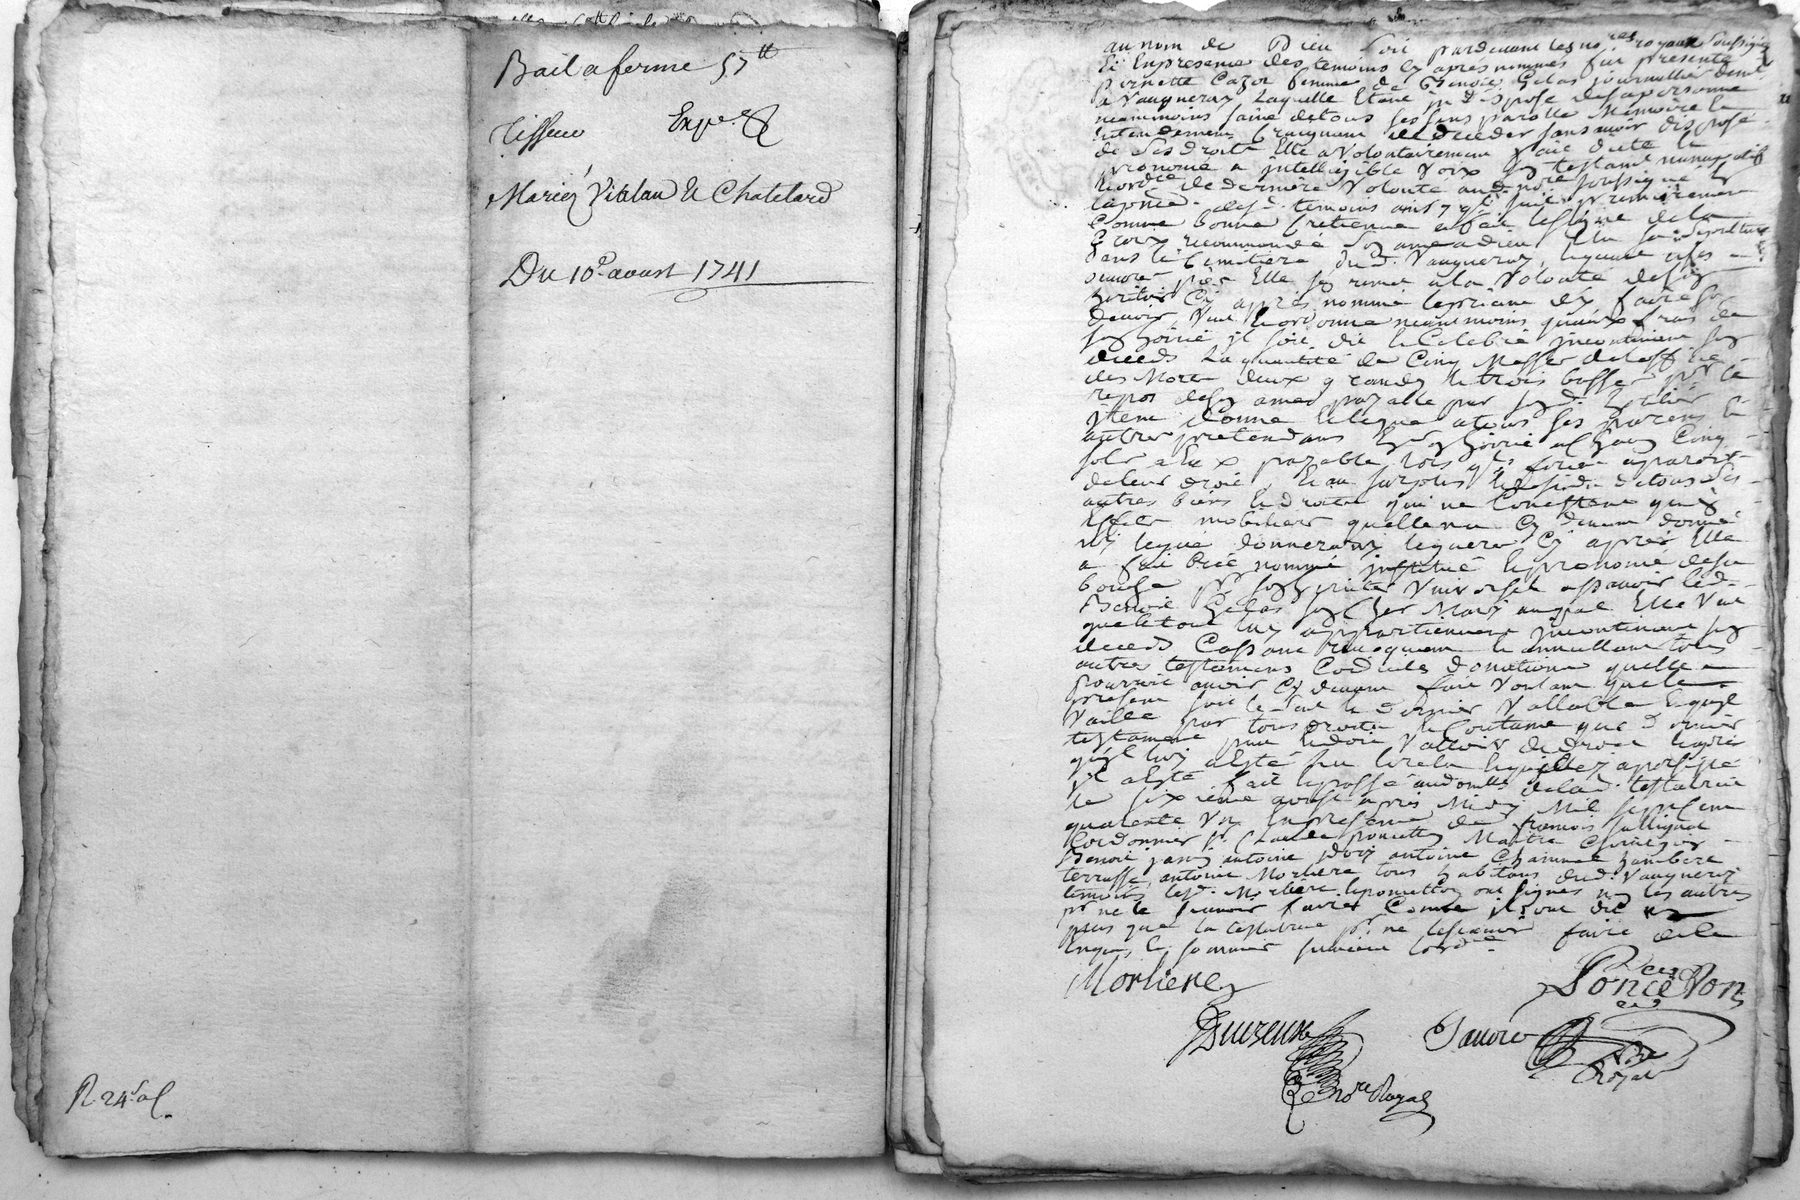 Bail a ferme 57ᵗᵗ
Tisseur Expe.
Mariez Vialan & Chatelard
Du 10ᵉ aoust 1741
R. 24ˢ
au nom de Dieu soit pardevant les noʳᵉˢ royaux soussignes
Et En presence des temoins cy apres nommes fut presente
pernette Cazot femme de Benoit Gelas journallier demt
a Vaugneray laquelle Etant indispose de sa personne
neanmoins saine de tous ses sens parolle Memoire &
Entendement Craignant de deceder sans avoir dispose
de ses droits Elle a volontairement fait dicte &
prononcé a intelligible voix son testamt nuncupatif
& ordce de derniere volonte aud. noʳᵉ soussigné En
la pnce desd. temoins ainsy qil suit premierement
Comme bonne Cretienne a fait le signe de la
Croix recommandé son ame a dieu Elu sa sepulture
dans le Cimetiere dud. Vaugneray, lequant a ses
pies Elle sen remet a la Volonté de son
heritier Cy apres nommé le priant den faire son
devoir Veut & ordonne neanmoins quaux frais de
son hoirie il soit dit & Celebré incontinent son
deceds la quantité de Cinq Messes de loffice
des Morts deux grandes & trois basses pʳ le
repos de son ame payable par sond. heritier
Item donne & legue a tous ses parens &
autres pretendans En son hoirie a Chacun Cinq
sols a Eux payable lors qils feront aparoir
de leur droit, Et au surplus & residu de tous ses
autres biens & droits qui ne Consistent quen
Effets mobiliers quelle na Cy devant donné
ny legué donnera ny leguera Cy apres Elle
a fait Créé nommé institué & prononcé de sa
bouche pʳ son heritier Universel a scavoir led.
Benoit Gelas son Cher Mary auquel Elle Veut
que le tout luy appartiennent incontinant son
deceds Cassant revoquant & annullant tous
autres testamens Codiciles donations quelle
pourroit avoir Cy devant fait Voulant que le
present soit le seul & dernier Vallable & quil
Vaille par tous droits & Coutume que dernier
testament peut & doit Valloir de droit & apres
qil luy a Esté lu & relu a persisté
Et a Esté fait & passé au domlle de lad. testatrice
le sixieme aoust apres Midy Mil sept cent
quarente Un En presence de francois
Cordonnier sʳ Claude poncetton Maitre Chirurgien
Benoit antoine antoine Chainne
terrasse, antoine Morliere tous habitans dud. Vaugneray
temoins lesd. Morliere & poncetton ont signes non les autres
pʳ ne le scavoir faire Comme ils ont dit non
plus que la testatrice pʳ ne le scavoir faire de ce
Enquis & sommés suivant lordce
Morliere
Poncetton
Duvzeune
noʳᵉ Royal
Favre
nʳᵉ Royal